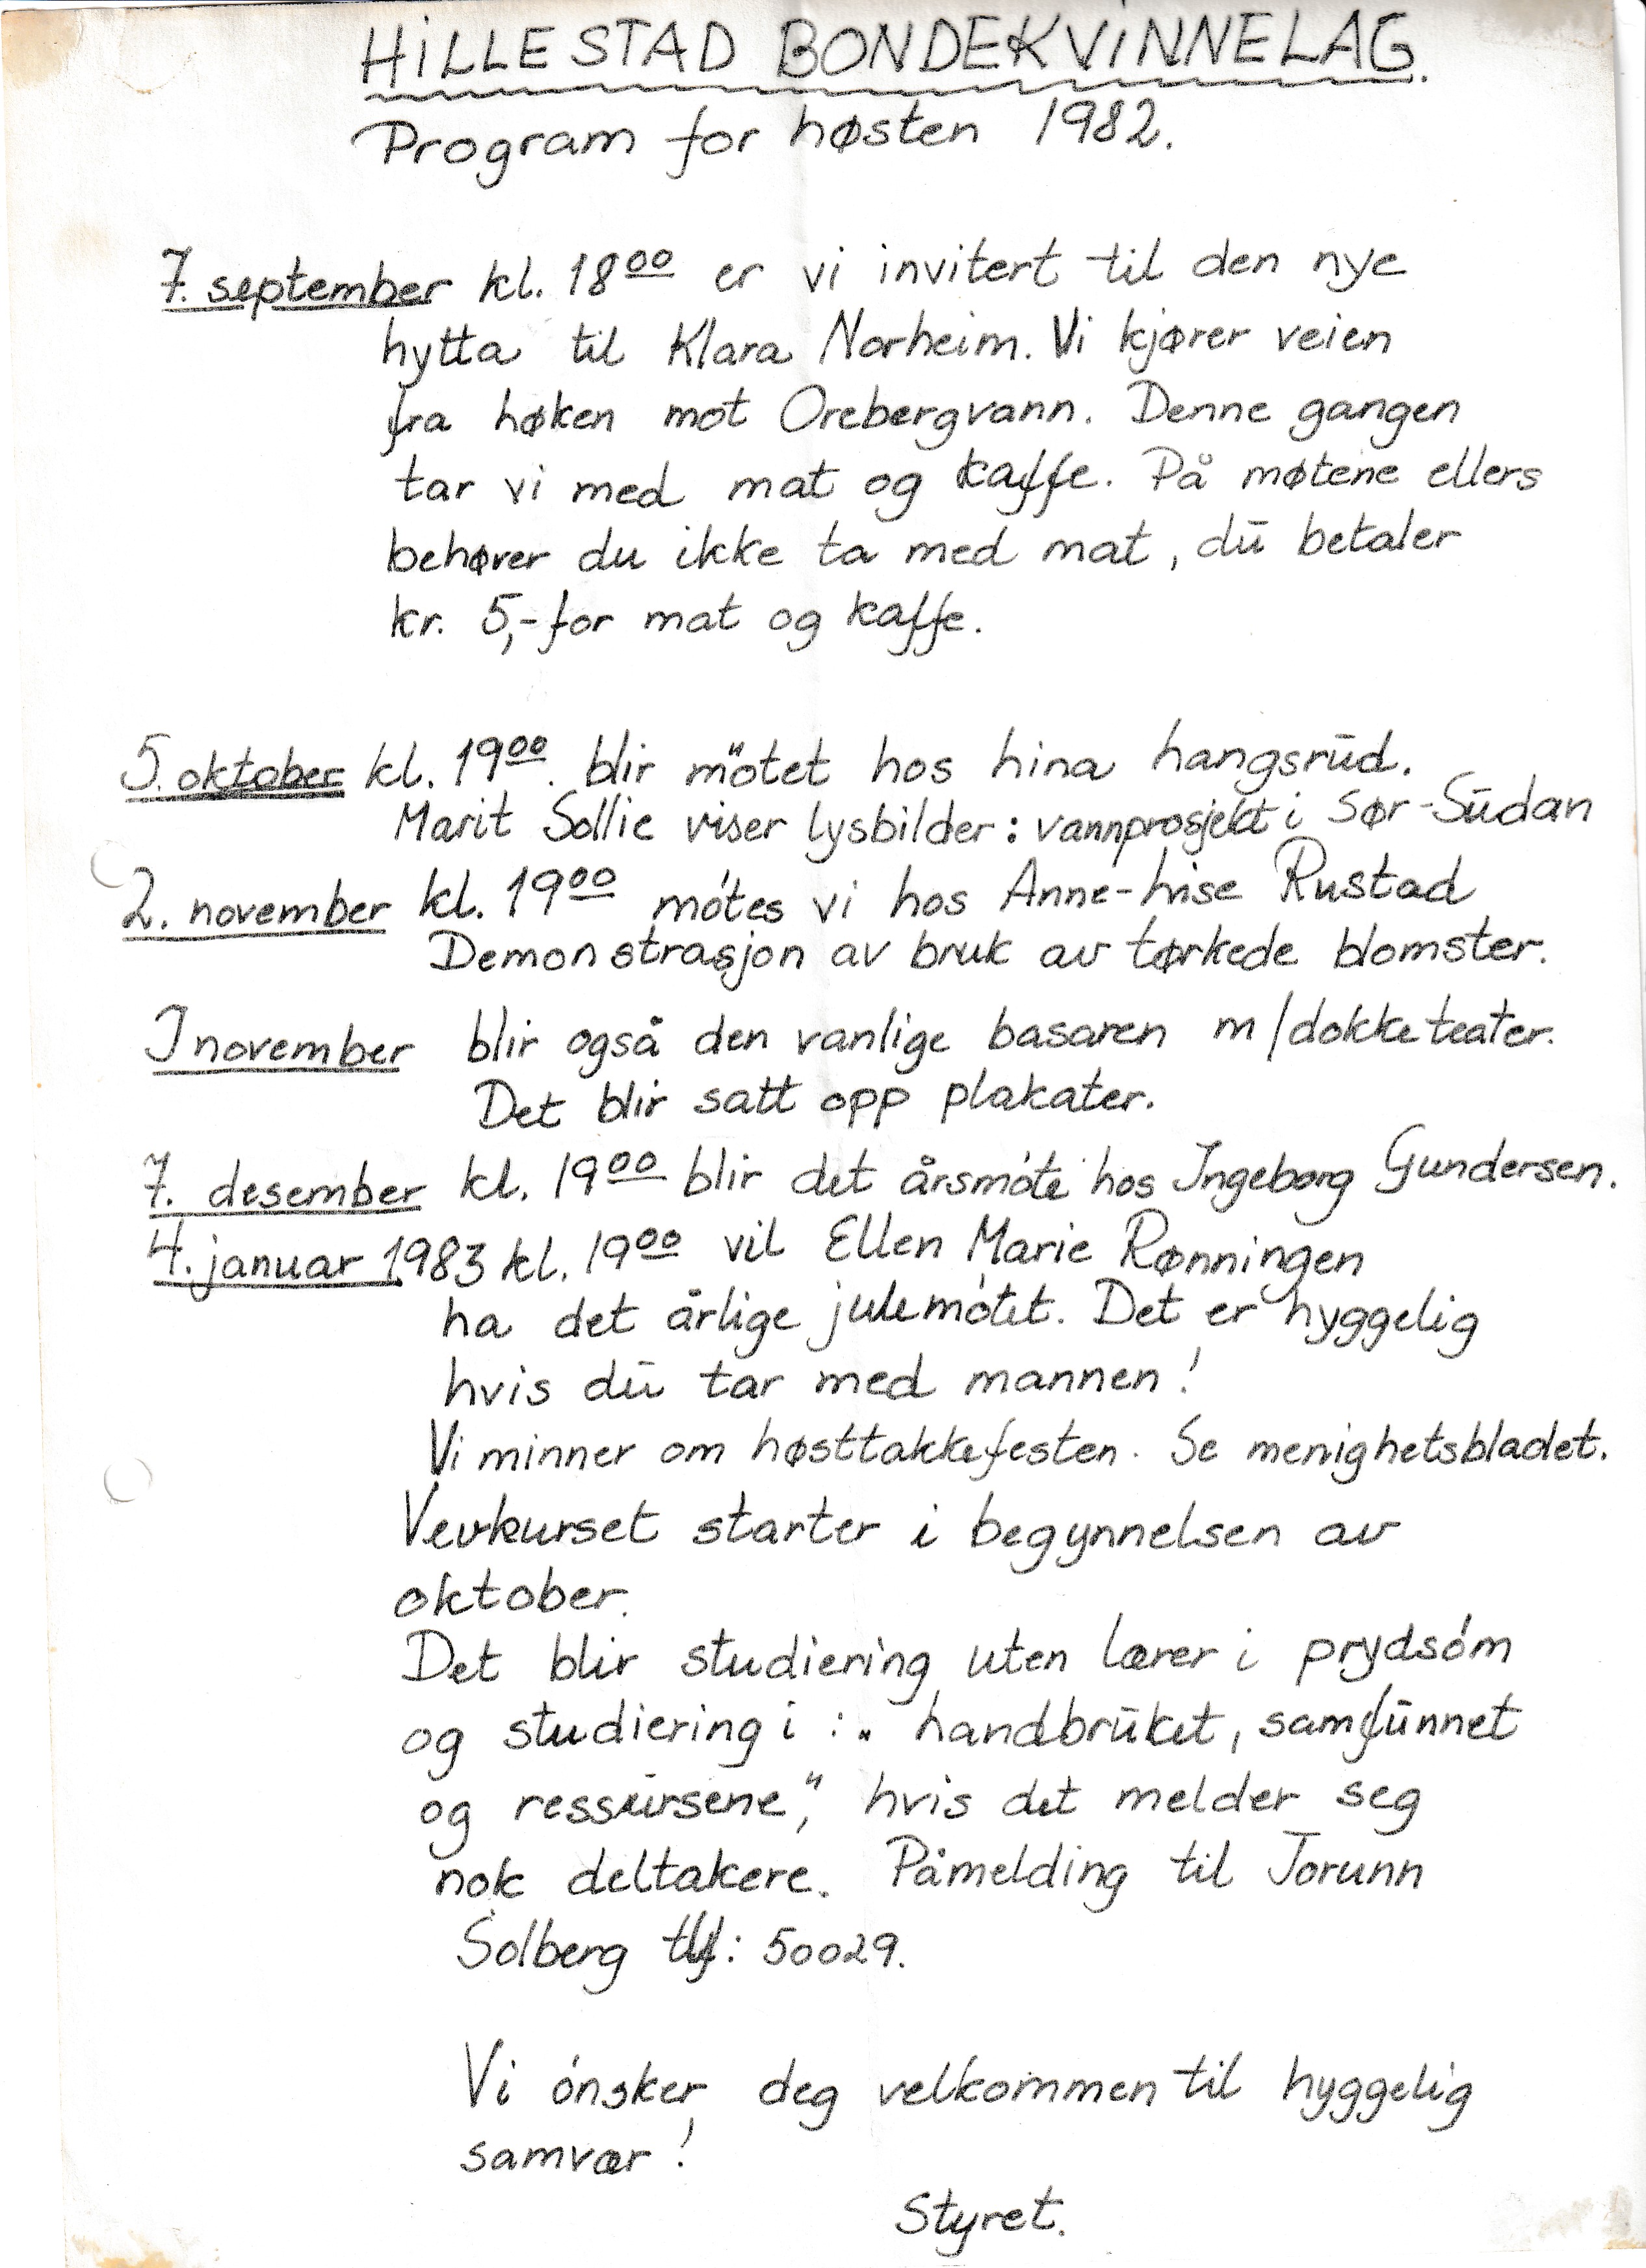 HILLESTAD BONDEKVINNELAG.
Program for høsten 1982.
7. september kl. 18⁰⁰ er vi invitert til den nye
hytta til Klara Norheim. Vi kjører veien
fra Løken mot Orebergvann. Denne gangen
tar vi med mat og kaffe. På møtene ellers
behøver du ikke ta med mat, du betaler
kr. 5,- for mat og kaffe.
5. oktober kl. 19⁰⁰. blir møtet hos Lina Langsrud.
Marit Sollie viser lysbilder: vannprosjekt i Sør-Sudan
2. november kl. 19⁰⁰ møtes vi hos Anne-Lise Rustad
Demonstrasjon av bruk av tørkede blomster.
I november blir også den vanlige basaren m/dokketeater.
Det blir satt opp plakater.
7. desember kl. 19⁰⁰ blir det årsmøte hos Ingeborg Gundersen.
4. januar 1983 kl. 19⁰⁰ vil Ellen Marie Rønningen
ha det årlige julemøtet. Det er hyggelig
hvis du tar med mannen!
Vi minner om høsttakkefesten. Se menighetsbladet.
Vevkurset starter i begynnelsen av
oktober.
Det blir studiering uten lærer i prydsøm
og studiering i: „Landbruket, samfunnet
og ressursene," hvis det melder seg
nok deltakere. Påmelding til Torunn
Solberg tlf: 50029.
Vi ønsker deg velkommen til hyggelig
samvær!
Styret.